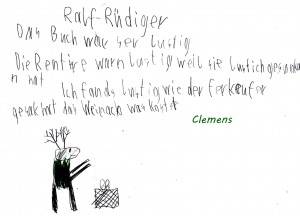 Ralf-Rüdiger
Das Buch war ser lustig
Die Rentire warn lustig weil sie lustich gesungen
n hat
Ich fands lustig wie der Ferkeufer
gesakt hat das Weinach was kostet
Clemens